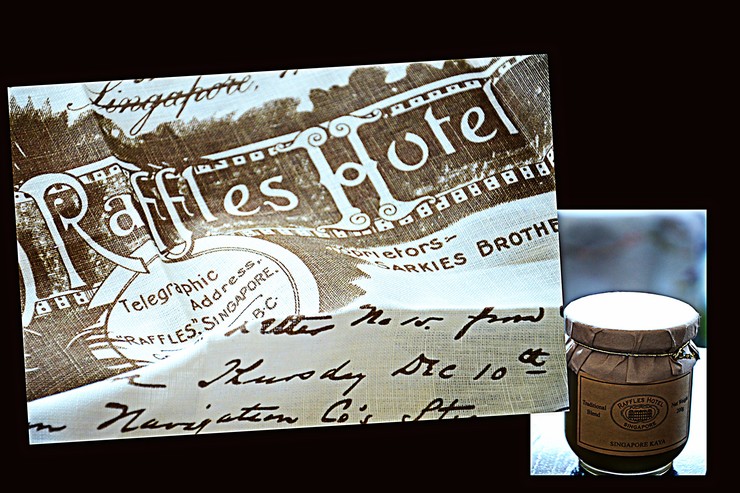 Singapore,
Raffles Hotel
Proprietors~
SARKIES BROTHE
Telegraphic
Address.
"RAFFLES". SINGAPORE.
B.C.
Letter No 10. from
Thursday Dec 10th
Navigation Co's
Traditional
Blend
RAFFLES HOTEL
SINGAPORE
Net Weight
SINGAPORE KAYA